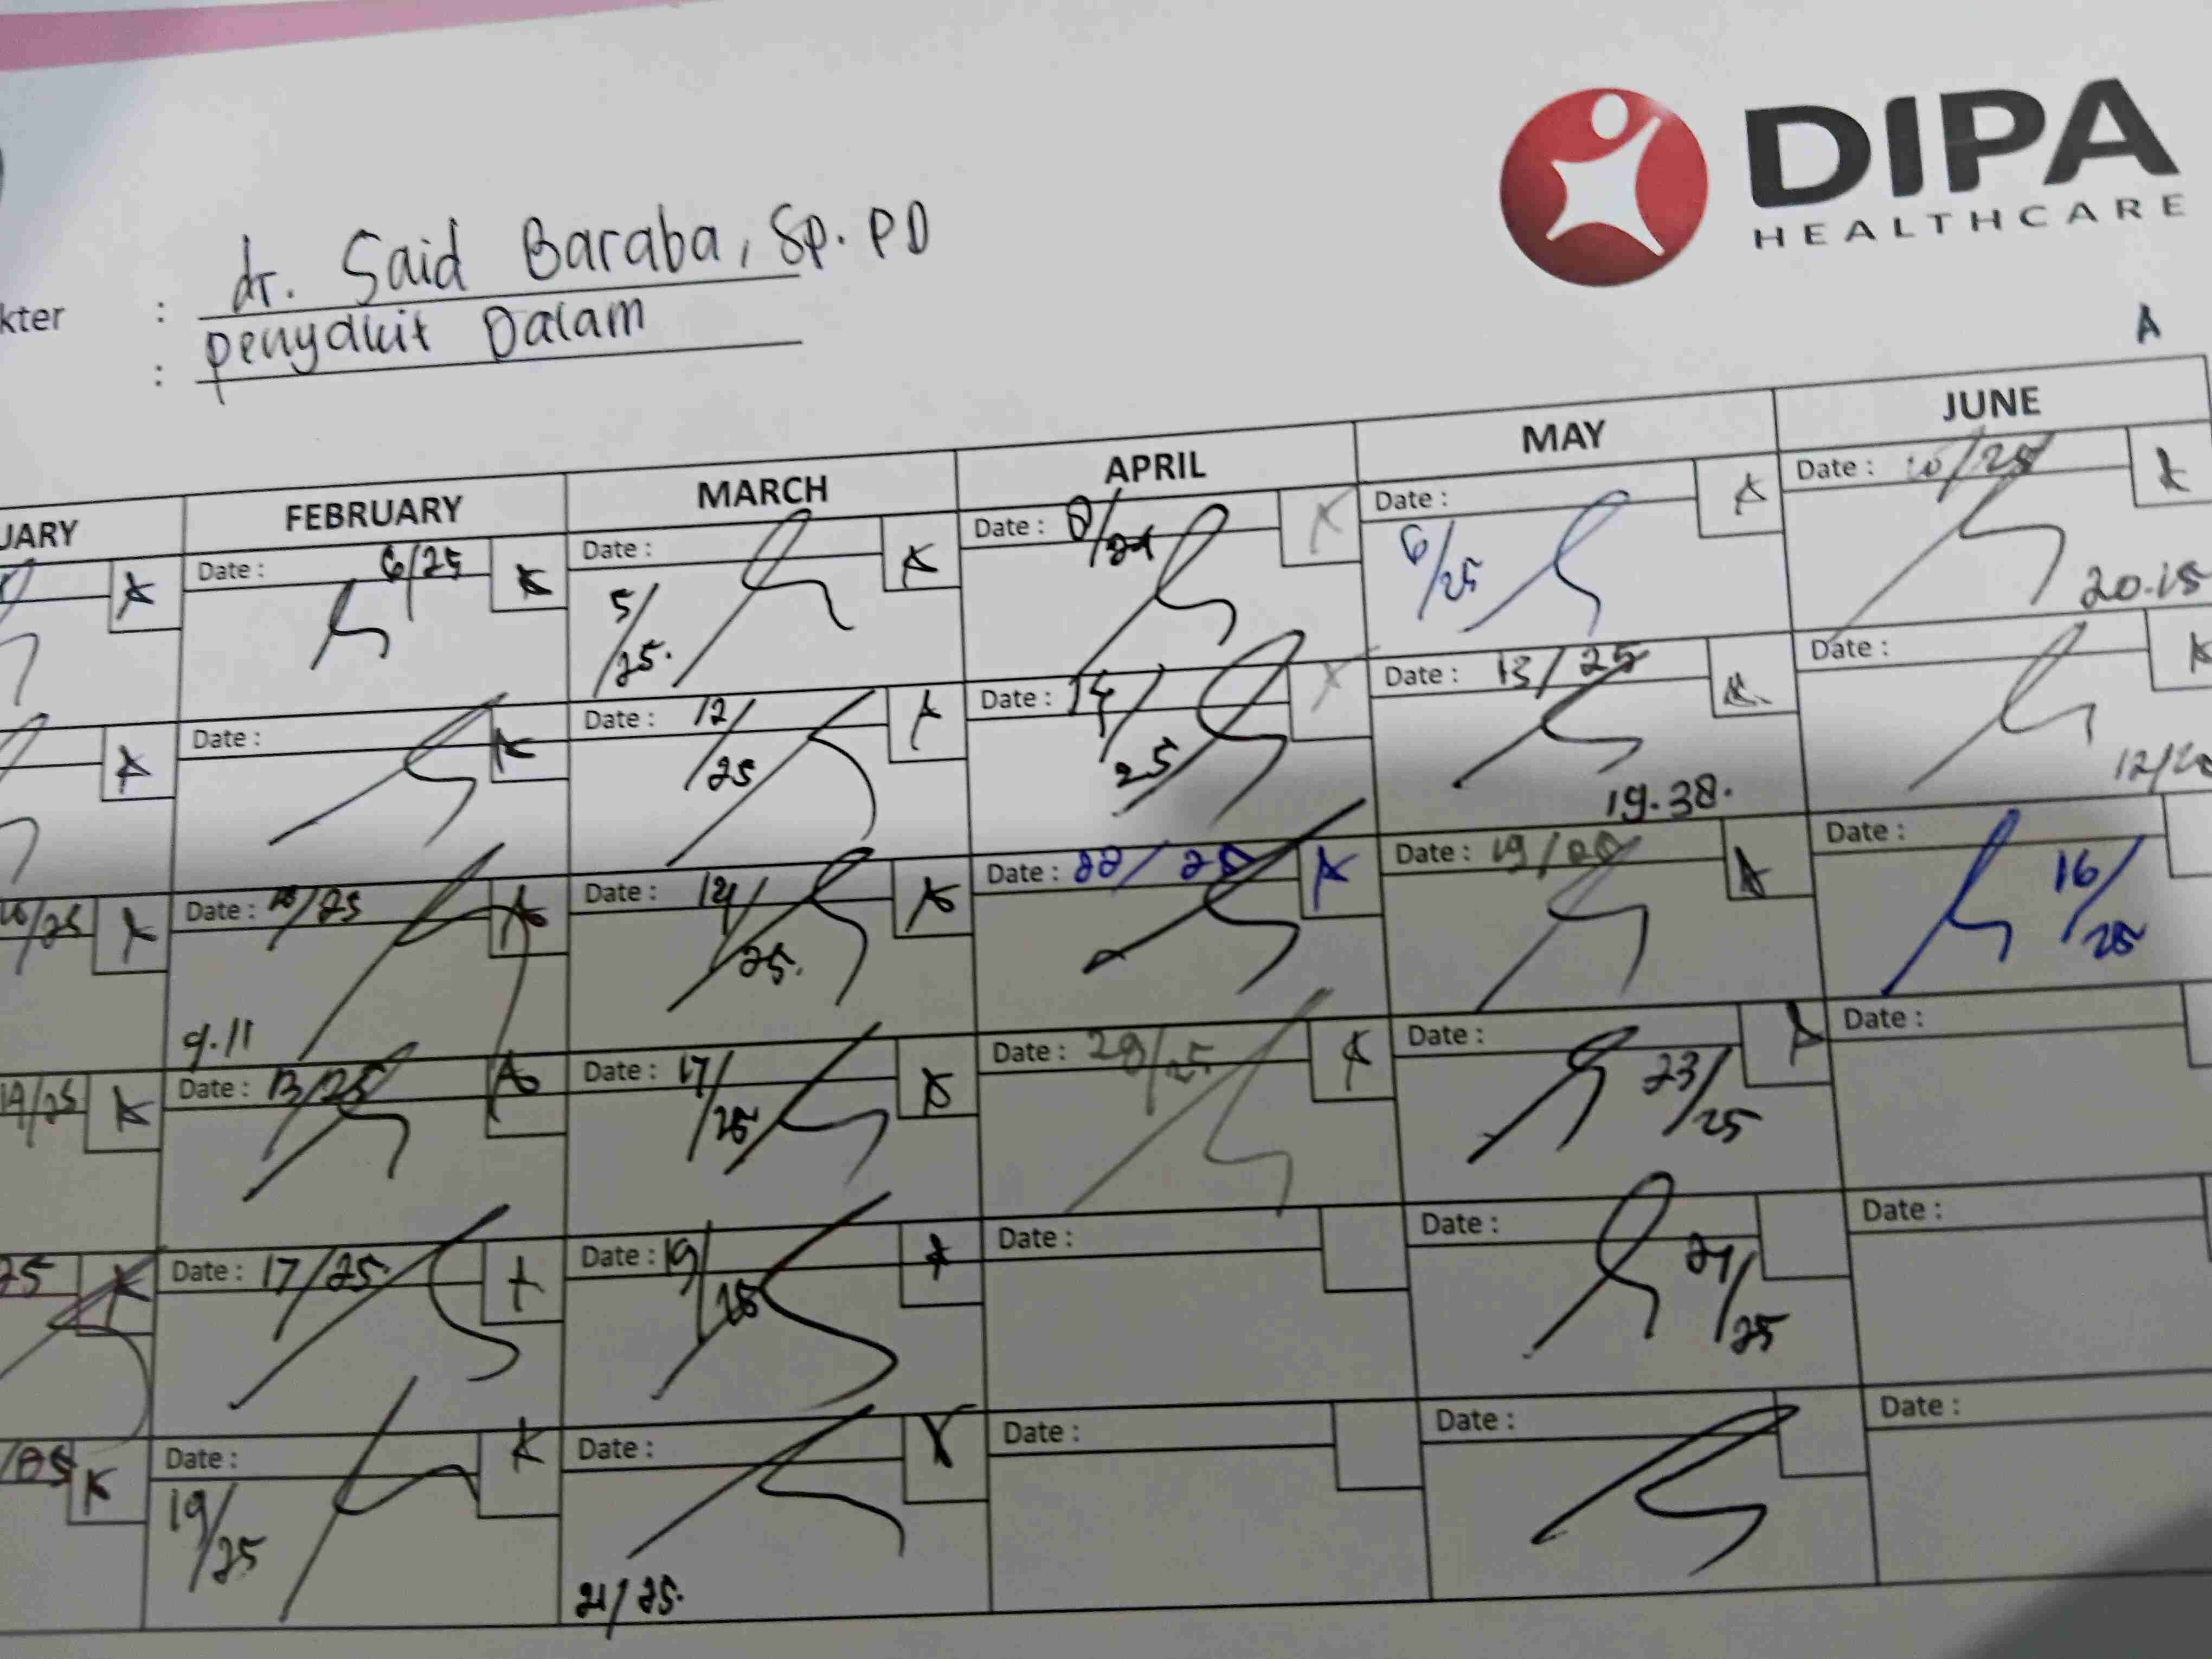 DIPA
HEALTHCARE
kter : dr. Said Baraba, Sp. PD
: Penyakit Dalam
A
UARY FEBRUARY MARCH APRIL MAY JUNE
Date : 6/25 Date : 5/25. Date : 8/ Date : 6/25 Date : 10/25
20.15
Date : Date : 12/25 Date : 14/25 Date : 13/25 Date :
19.38.
Date : /25 Date : 14/25. Date : 22/25 Date : 19/ Date : 16/25
9.11
19/25 Date : 13/25 Date : 17/25 Date : 28/25 Date : 23/25 Date :
25 Date : 17/25. Date : 19/25 Date : Date : 27/25 Date :
/25 K Date : 19/25 Date : 21/25. Date : Date : Date :